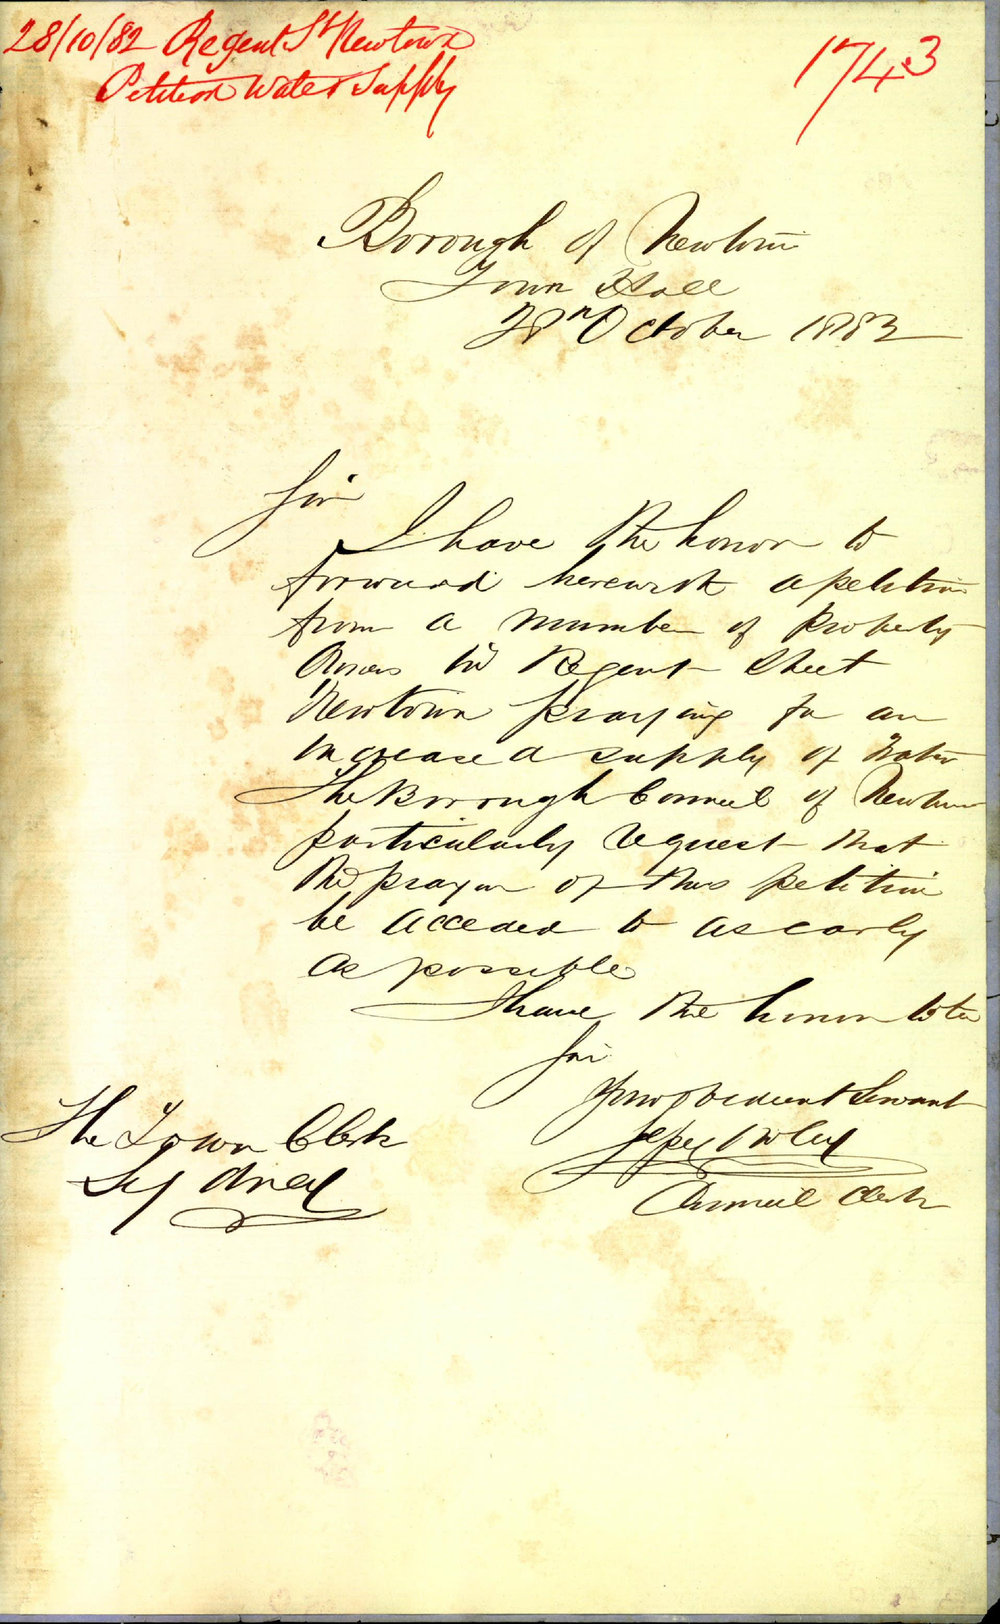 28/10/82 Regent St Newtown
Petition Water Supply
1743
Borough of Newtown
Town Hall
28th October 1882
Sir
I have the honor to
forward herewith a petition
from a number of Property
Owners in Regent Street
Newtown praying for an
increased supply of Water
The Borough Council of Newtown
particularly request that
the prayer of this petition
be acceded to as early
as possible
I have the honor to be
Sir
Your obedient Servant
Council Clerk
The Town Clerk
Sydney